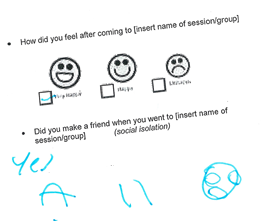 How did you feel after coming to [insert name of session/group]
Very HAPPY HAPPY UNHAPPY
Did you make a friend when you went to [insert name of
session/group] (social isolation)
yes